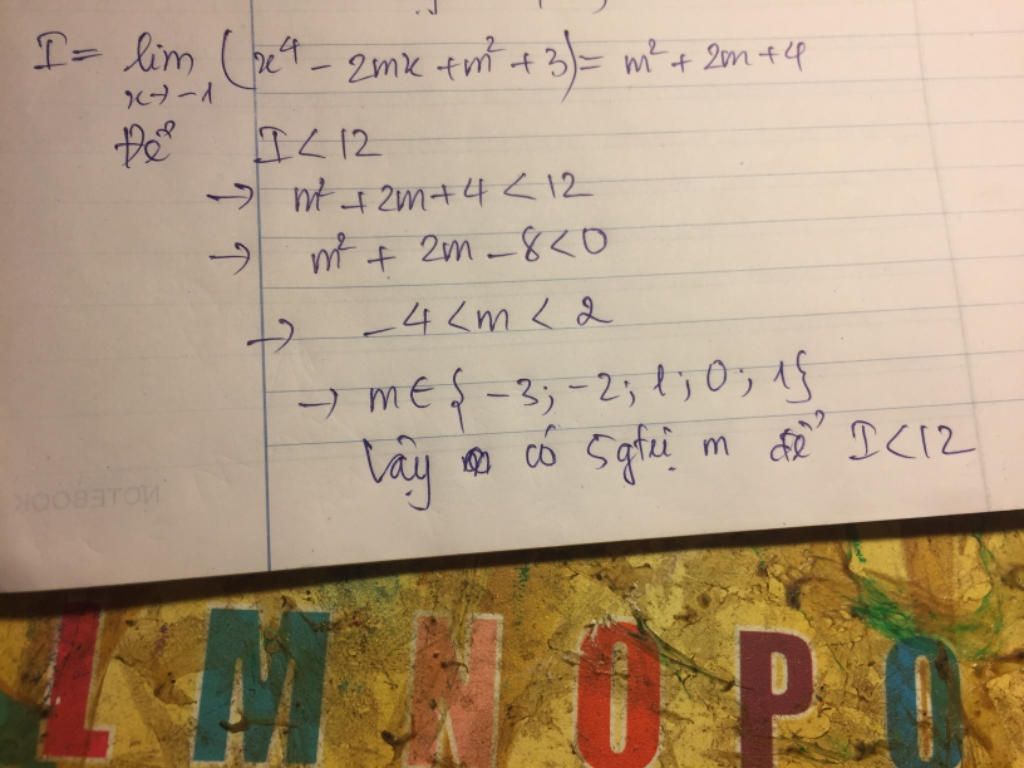 I = lim (x⁴ - 2mx + m² + 3) = m² + 2m + 4
x→-1
Để I < 12
→ m² + 2m + 4 < 12
→ m² + 2m - 8 < 0
→ -4 < m < 2
→ m ∈ {-3; -2; 1; 0; 1}
Vậy có 5 gtrị m để I < 12
NOTEBOOK
L M N O P O